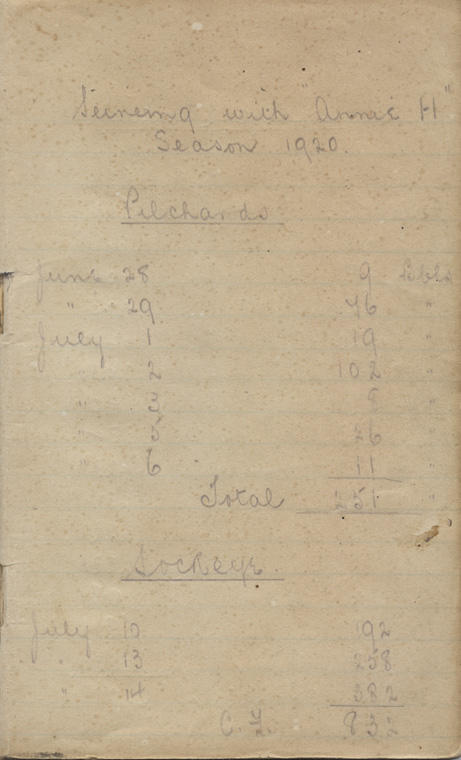 Seineing with "Annie H"
Season 1920.
Pilchards
June 28 9 bbls
" 29 76 "
July 1 19 "
" 2 102 "
" 3 8 "
" 5 26 "
" 6 11 "
Total 251 "
Sockeye.
July 10 192
" 13 258
" 14 382
C. F. 832